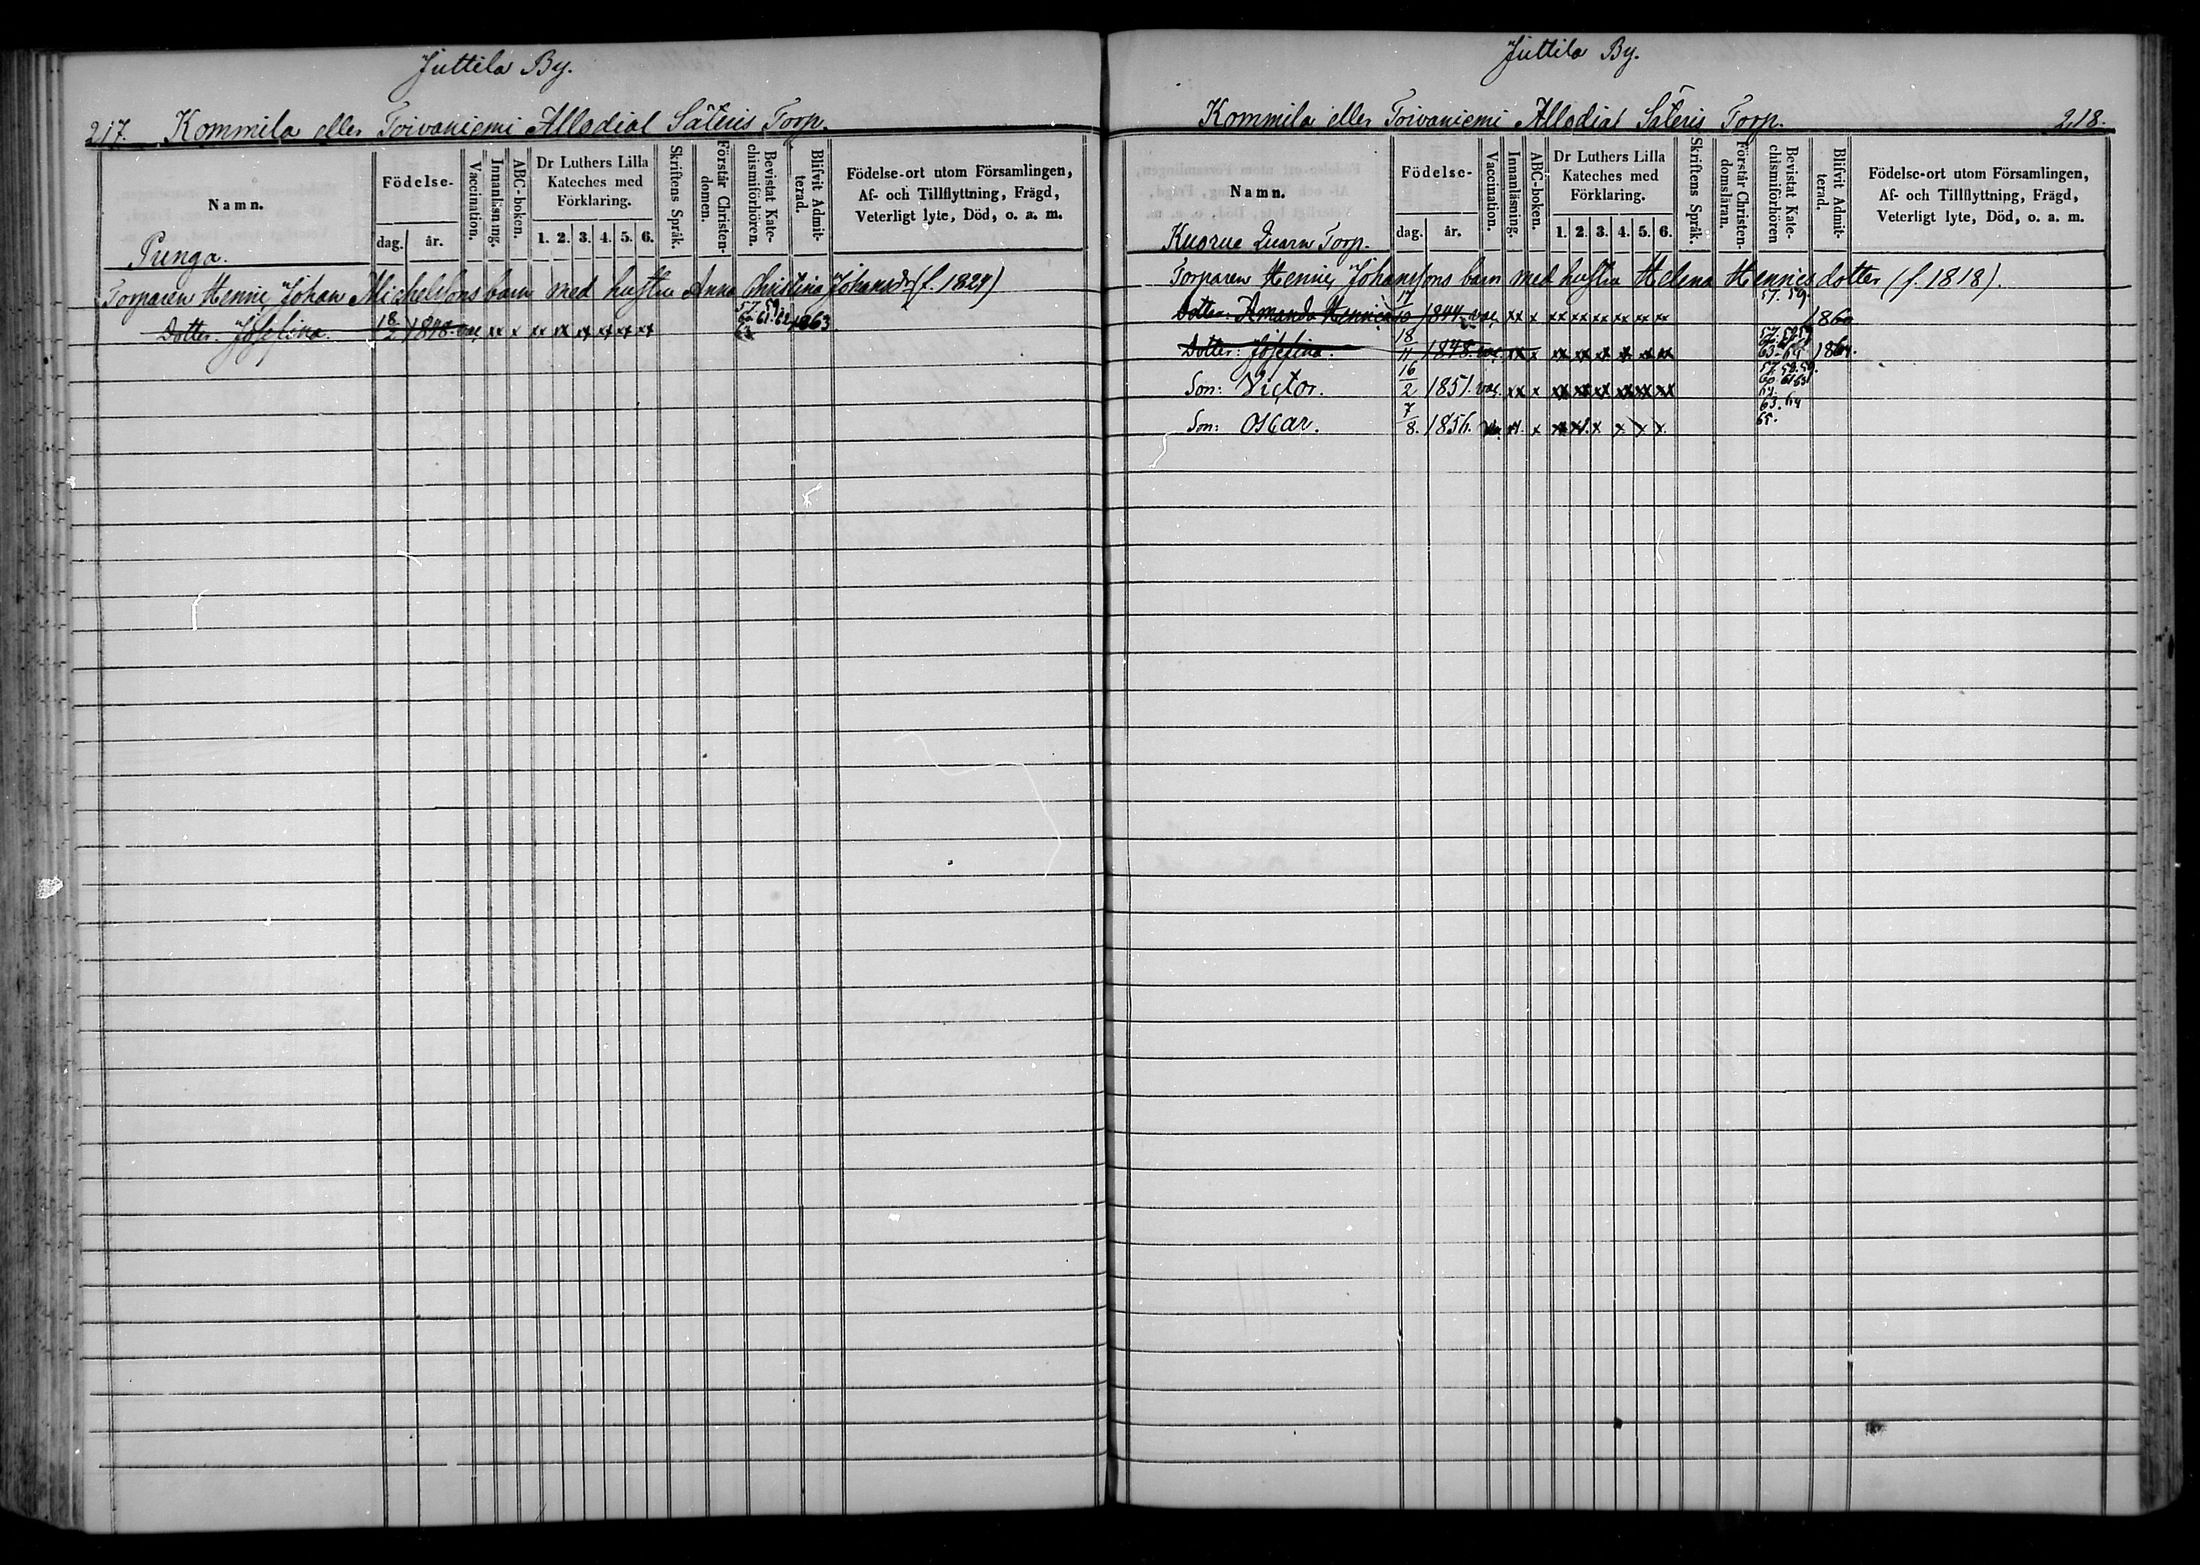 Juttila By.
217. Kommila eller Toivaniemi Allodial Säteris Torp.
Namn.
Födelse-
dag. år.
Vaccination.
Innanläsning.
ABC-boken.
Dr Luthers Lilla
Kateches med
Förklaring.
1. 2. 3. 4. 5. 6.
Skriftens Språk.
Förstår Christen-
domen.
Bevistat Kate-
chismiförhören.
Blifvit Admit-
terad.
Födelse-ort utom Församlingen,
Af- och Tillflyttning, Frägd,
Veterligt lyte, Död, o. a. m.
Punga.
Torparen Henric Johan Michelssons barn med hustru Anna Christina Johansdr (f. 1824)
Dotter: Josefina. 18/2 1848. vac. xx x xx xx xx xx xx xx 1863
Juttila By.
Kommila eller Toivaniemi Allodial Säteris Torp. 218.
Namn.
Födelse-
dag. år.
Vaccination.
Innanläsning.
ABC-boken.
Dr Luthers Lilla
Kateches med
Förklaring.
1. 2. 3. 4. 5. 6.
Skriftens Språk.
Förstår Christen-
domsläran.
Bevistat Kate-
chismiförhören
Blifvit Admit-
terad.
Födelse-ort utom Församlingen,
Af- och Tillflyttning, Frägd,
Veterligt lyte, Död, o. a. m.
Kuorue Quarn Torp.
Torparen Henric Johanssons barn med hustru Helena Henricsdotter (f. 1818).
Dotter: Amanda 17/10 1844. vac. xx x xx xx xx xx xx xx 57. 59. 1860
Dotter: Josefina. 18/11 1848. vac. xx x xx xx xx xx xx xx 63. 64 1864.
Son: Victor. 16/2 1851. vac. xx x xx xx xx xx xx xx
Son: Oscar. 7/8. 1856. x x x x x 63. 64
65.